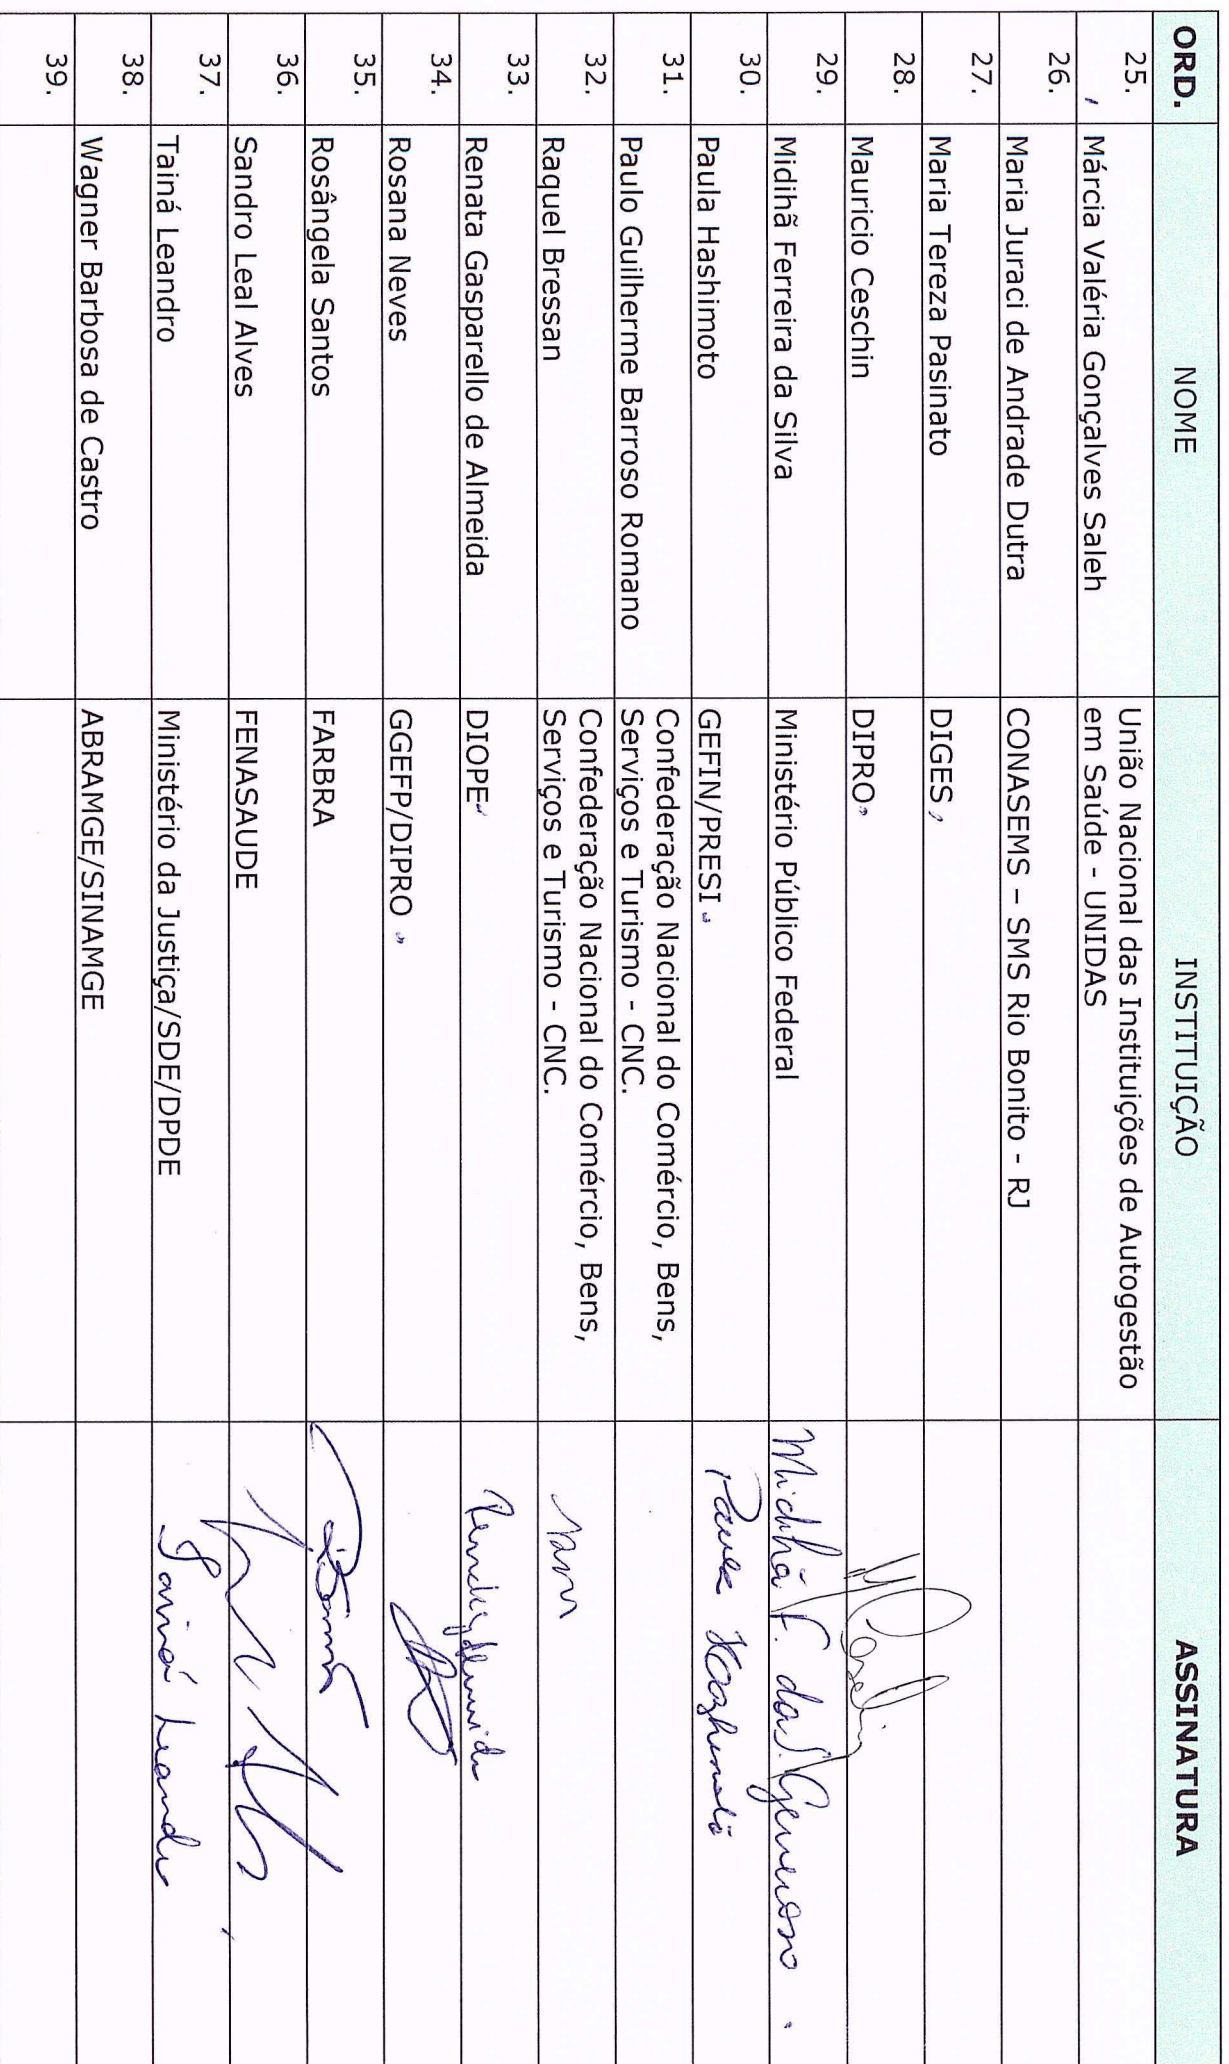 ORD. NOME INSTITUIÇÃO ASSINATURA
25. Márcia Valéria Gonçalves Saleh União Nacional das Instituições de Autogestão
em Saúde - UNIDAS
26. Maria Juraci de Andrade Dutra CONASEMS – SMS Rio Bonito - RJ
27. Maria Tereza Pasinato DIGES
28. Mauricio Ceschin DIPRO
29. Midihã Ferreira da Silva Ministério Público Federal Midihã F. da S. Generoso.
30. Paula Hashimoto GEFIN/PRESI Paula Hashimoto
31. Paulo Guilherme Barroso Romano Confederação Nacional do Comércio, Bens,
Serviços e Turismo - CNC.
32. Raquel Bressan Confederação Nacional do Comércio, Bens,
Serviços e Turismo - CNC.
33. Renata Gasparello de Almeida DIOPE
34. Rosana Neves GGEFP/DIPRO
35. Rosângela Santos FARBRA
36. Sandro Leal Alves FENASAUDE
37. Tainá Leandro Ministério da Justiça/SDE/DPDE Tainá Leandro
38. Wagner Barbosa de Castro ABRAMGE/SINAMGE
39.